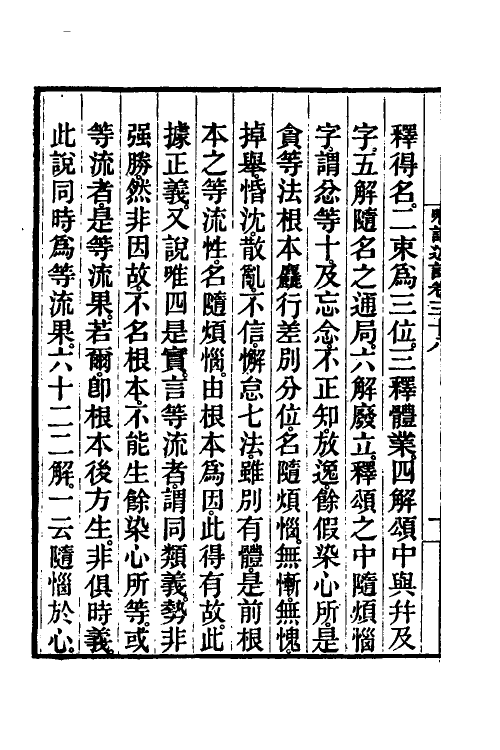 釋得名。二束為三位。三釋體業。四解頌中與幷及
字。五解隨名之通局。六解廢立。釋頌之中隨煩惱
字。謂忿等十。及忘念。不正知。放逸。餘假染心所。是
貪等法根本麤行差別分位。名隨煩惱。無慚。無愧。
掉舉。惛沈。散亂。不信。懈怠七法。雖別有體。是前根
本之等流性。名隨煩惱。由根本為因。此得有故。此
據正義。又說唯四是實。言等流者。謂同類義。勢非
强勝。然非因故。不名根本。不能生餘染心所等。或
等流者。是等流果。若爾。卽根本後方生。非俱時義。
此說同時為等流果。六十二二解。一云隨惱於心。